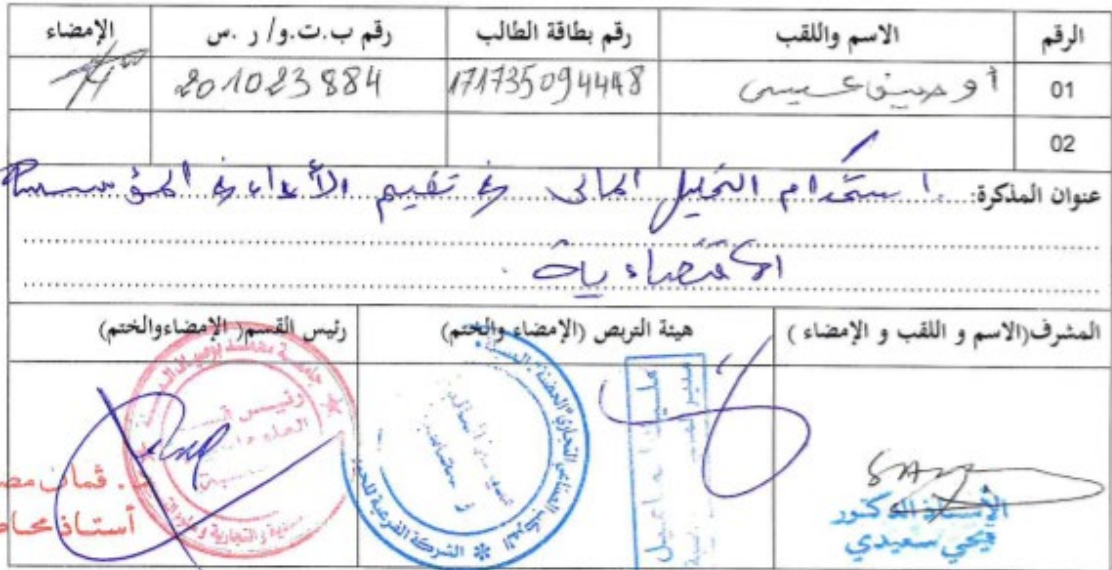 الرقم الاسم واللقب رقم بطاقة الطالب رقم ب.ت.و/ ر .س الإمضاء
01 أوصيف عيسى 171735094448 201023884
02
عنوان المذكرة: استخدام التحليل المالي في تقييم الأداء في المؤسسة
الاقتصادية
المشرف(الاسم و اللقب و الإمضاء ) هيئة التربص (الإمضاء والختم) رئيس القسم( الإمضاءوالختم)
الأستاذ الدكتور
يحي سعيدي
المركب الصناعي التجاري الحضنة المسيلة
الشركة الفرعية
جامعة محمد بوضياف المسيلة
رئيس
قمان
أستاذ